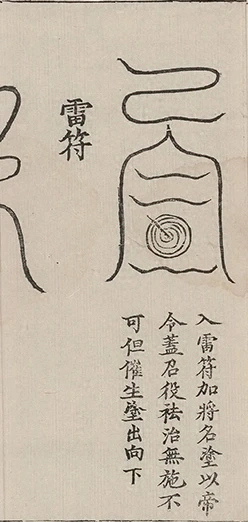 入雷符加將名塗以帝
令蓋召役祛治無施不
可但催生塗出向下
雷符